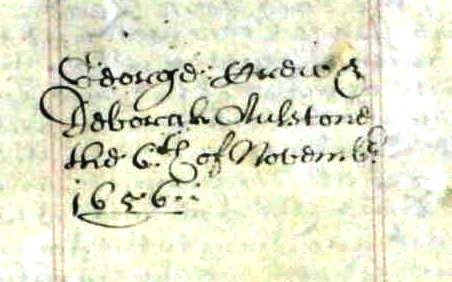 George Andrew &
Deborah Aulstone
the 6th of Novembr
1656